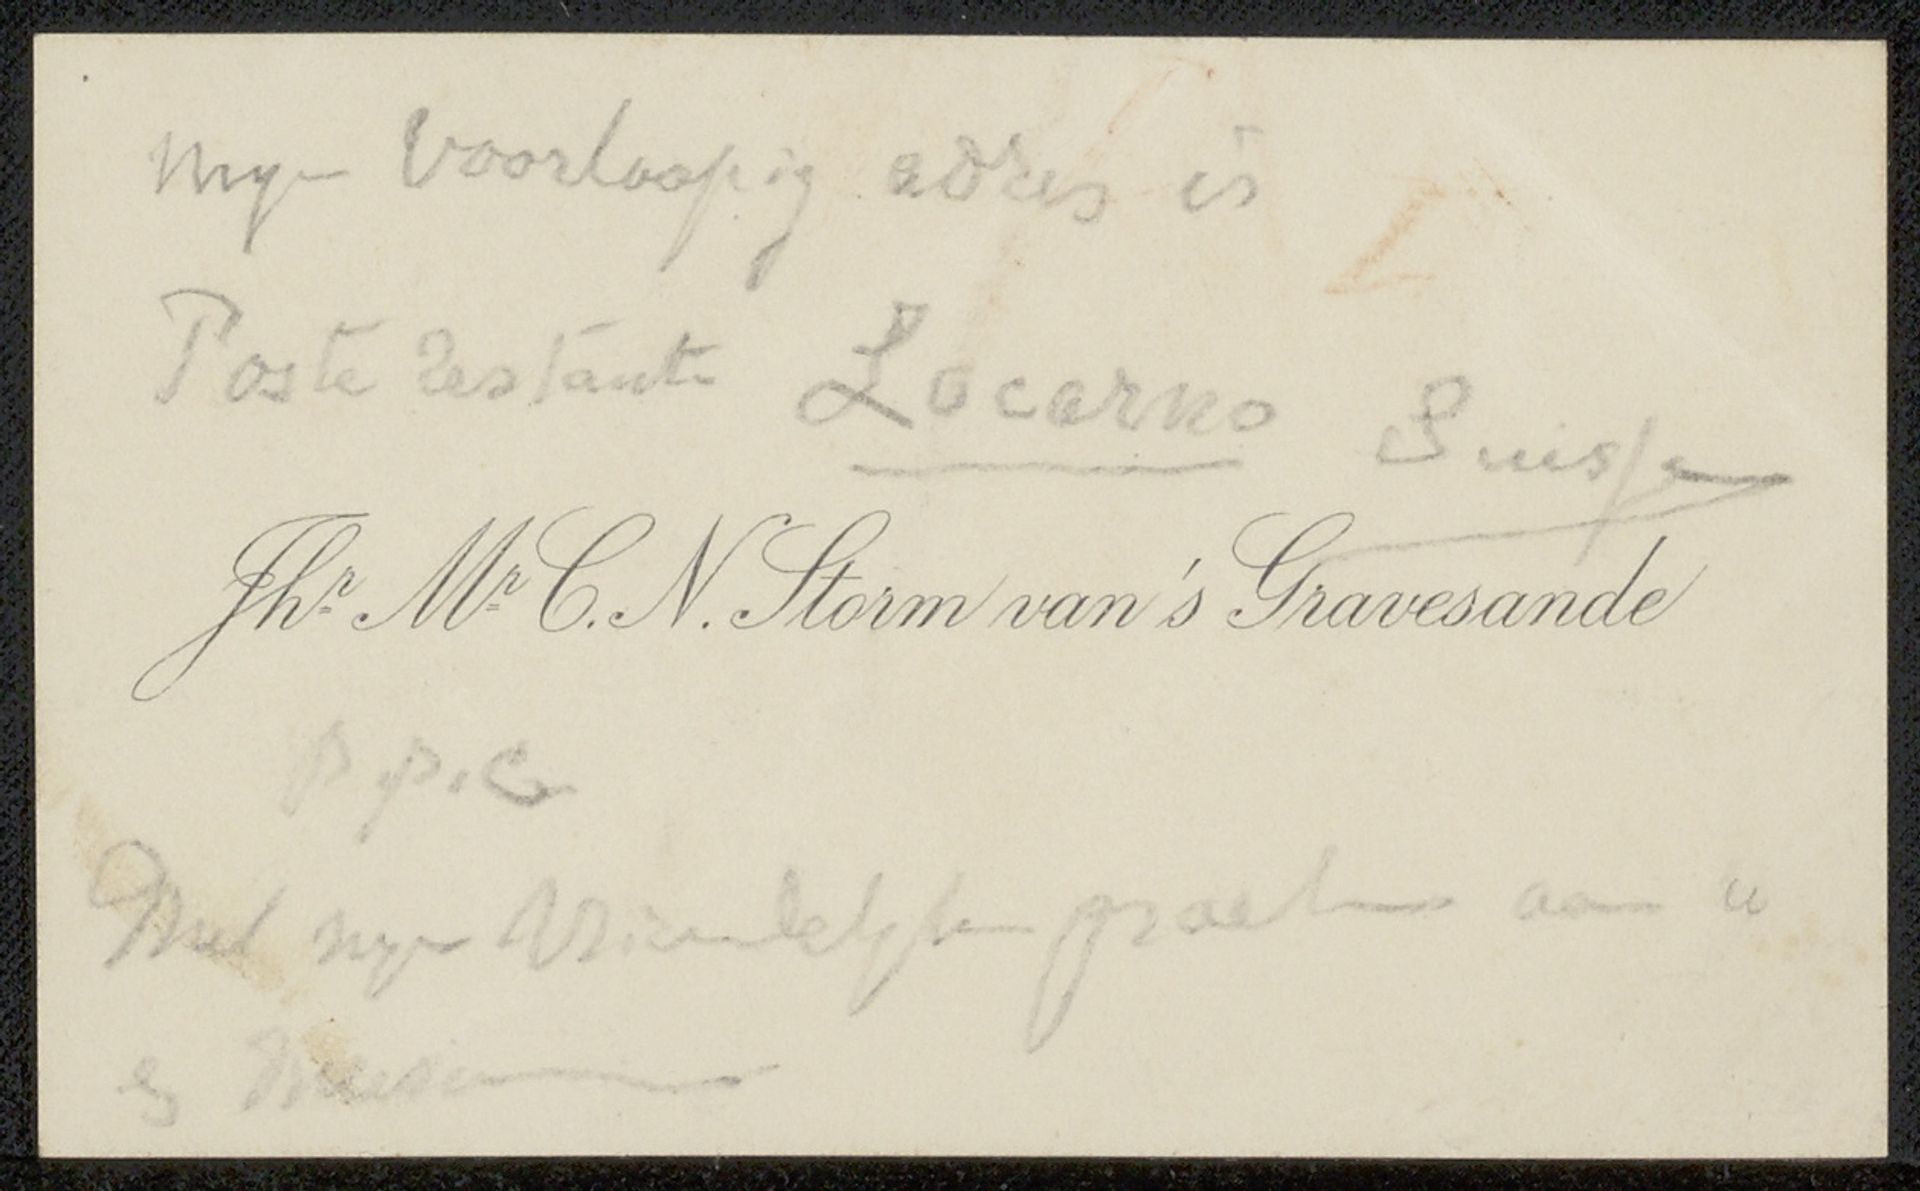 mijn voorloopig adres is
Poste restante Locarno Suisse
Jhr. Mr. C. N. Storm van 's Gravesande
p.p.c.
Met mijn vriendelijke groeten aan u